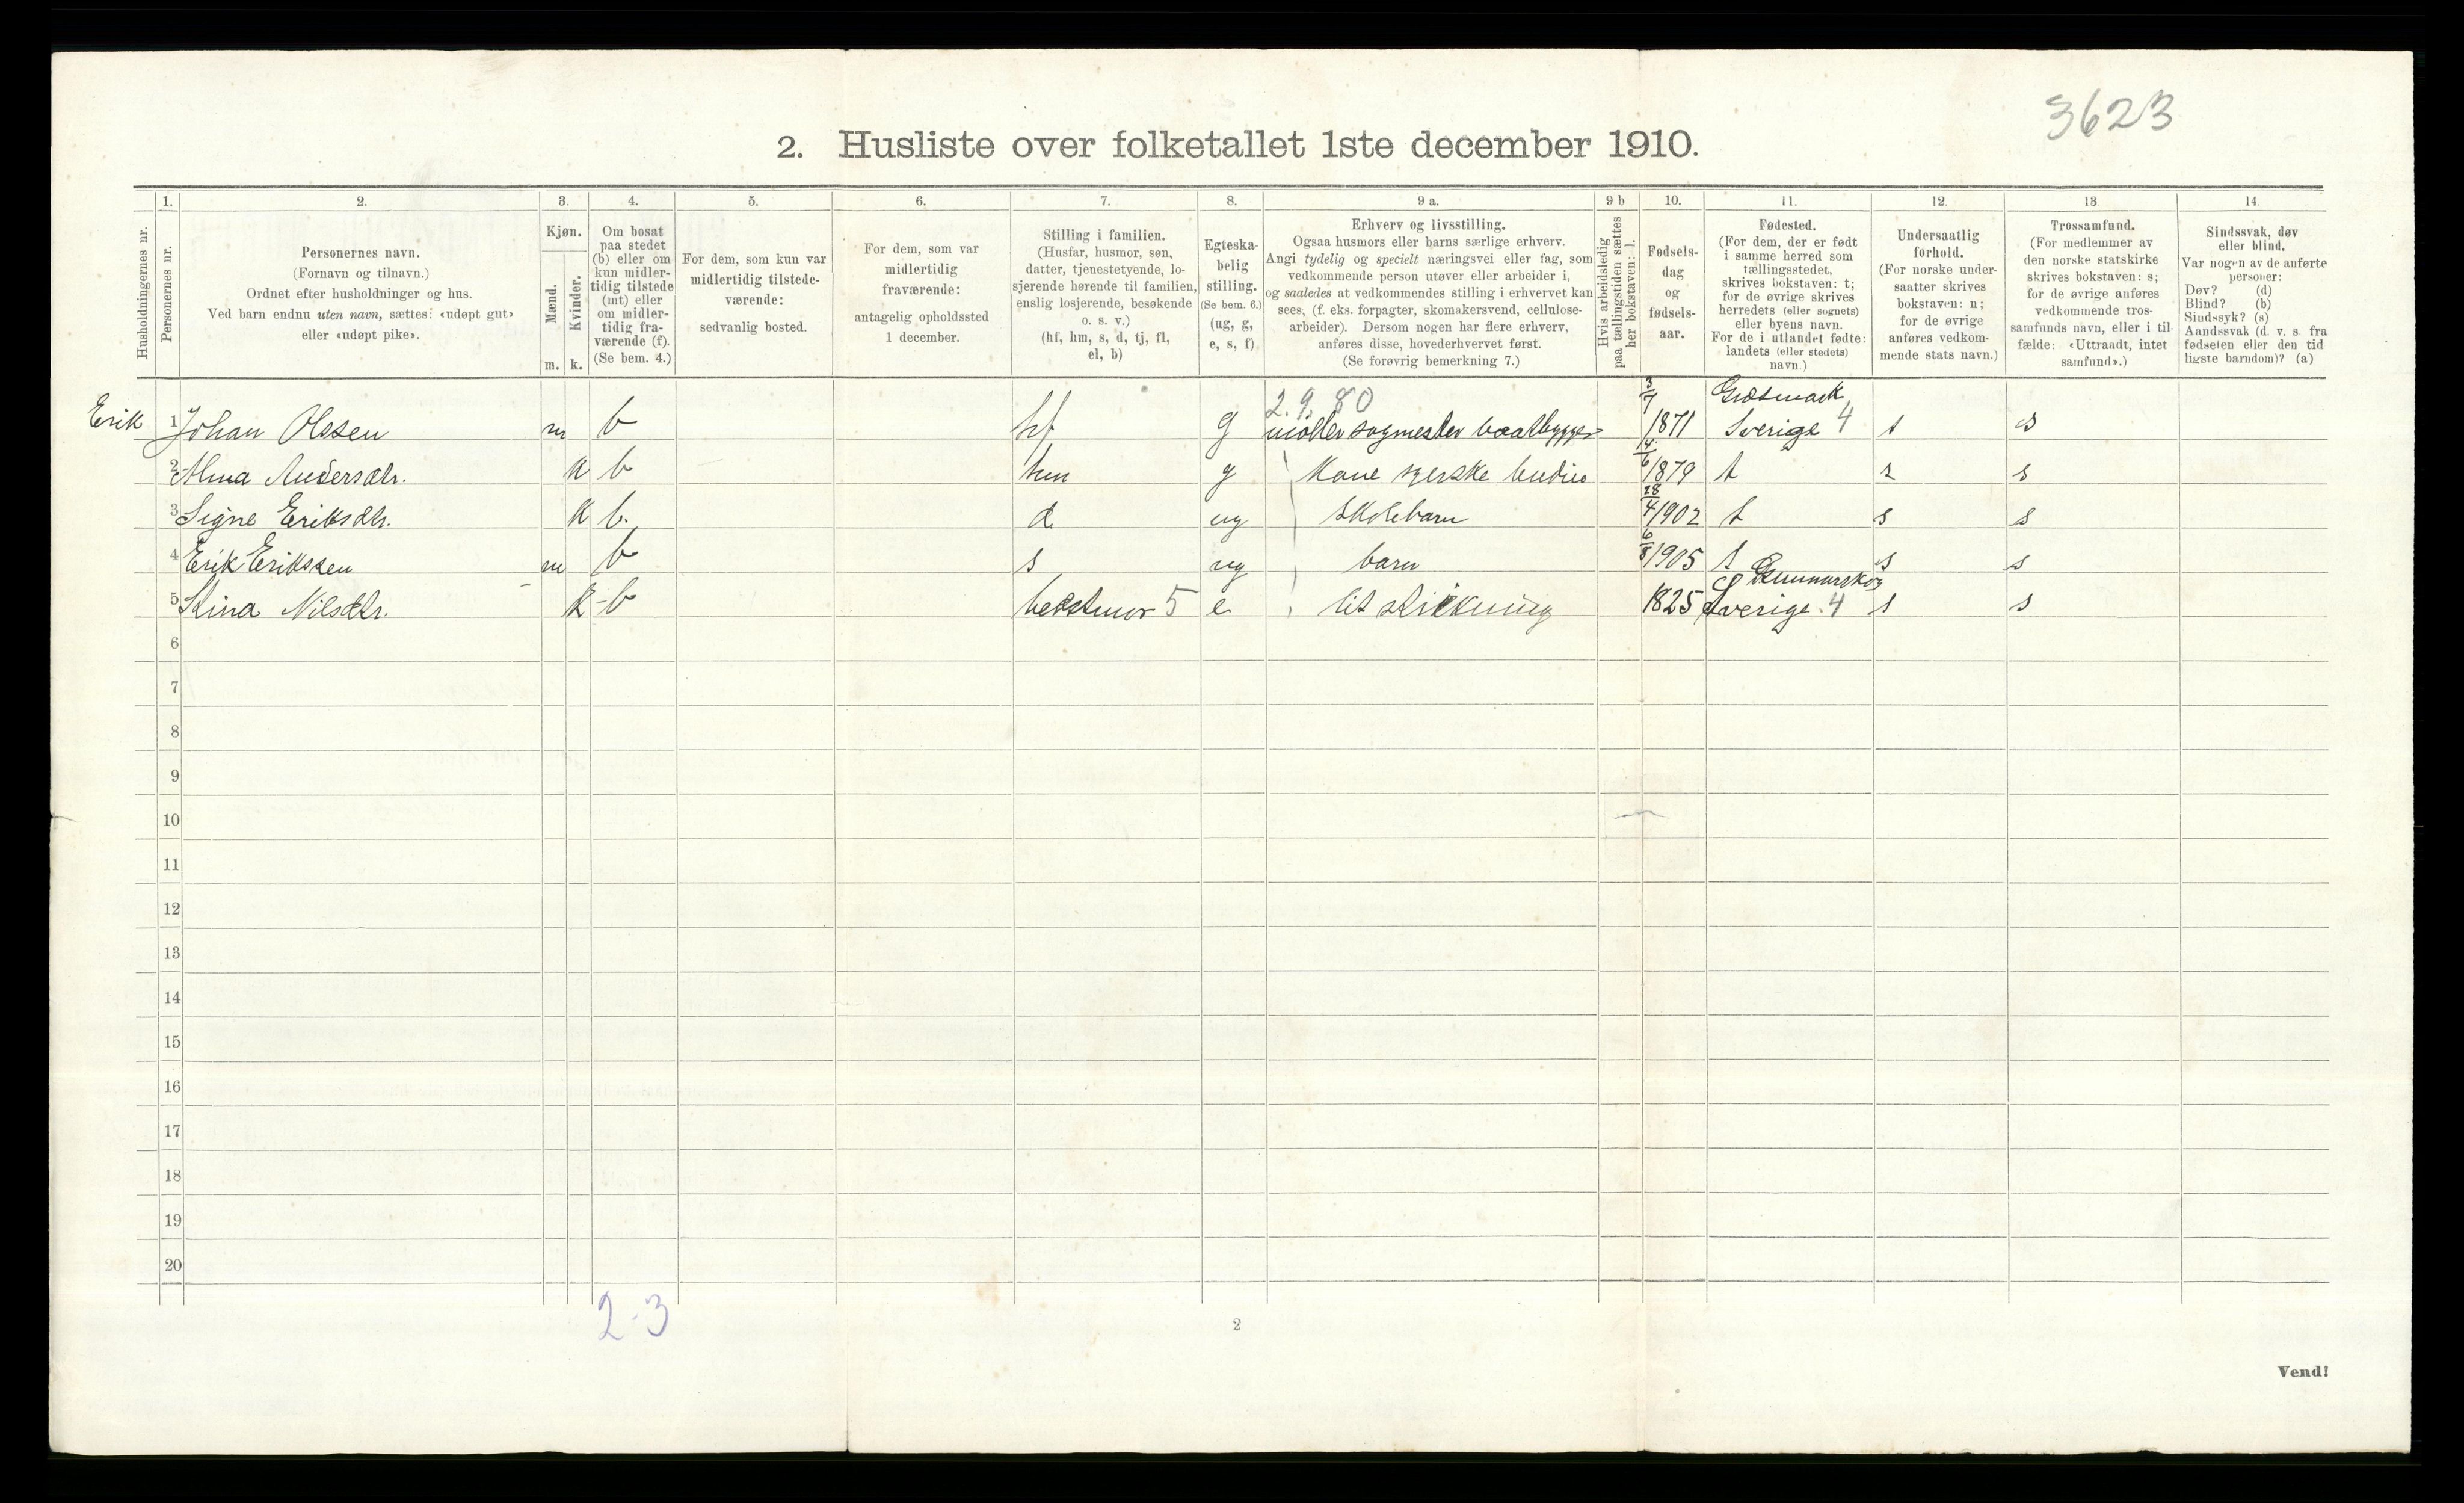 3623
2. Husliste over folketallet 1ste december 1910.
Husholdningernes nr.
1.
Personernes nr.
2.
Personernes navn.
(Fornavn og tilnavn.)
Ordnet efter husholdninger og hus.
Ved barn endnu uten navn, sættes: «udøpt gut»
eller «udøpt pike».
3.
Kjøn.
Mænd.
m.
Kvinder.
k.
4.
Om bosat
paa stedet
(b) eller om
kun midler-
tidig tilstede
(mt) eller
om midler-
tidig fra-
værende (f).
(Se bem. 4.)
5.
For dem, som kun var
midlertidig tilstede-
værende:
sedvanlig bosted.
6.
For dem, som var
midlertidig
fraværende:
antagelig opholdssted
1 december.
7.
Stilling i familien.
(Husfar, husmor, søn,
datter, tjenestetyende, lo-
sjerende hørende til familien,
enslig losjerende, besøkende
o. s. v.)
(hf, hm, s, d, tj, fl,
el, b)
8.
Egteska-
belig
stilling.
(Se bem. 6.)
(ug, g,
e, s, f)
9 a.
Erhverv og livsstilling.
Ogsaa husmors eller barns særlige erhverv.
Angi tydelig og specielt næringsvei eller fag, som
vedkommende person utøver eller arbeider i,
og saaledes at vedkommendes stilling i erhvervet kan
sees, (f. eks. forpagter, skomakersvend, cellulose-
arbeider). Dersom nogen har flere erhverv,
anføres disse, hovederhvervet først.
(Se forøvrig bemerkning 7.)
9 b
Hvis arbeidsledig
paa tællingstiden sættes
her bokstaven: l.
10.
Fødsels-
dag
og
fødsels-
aar.
11.
Fødested.
(For dem, der er født
i samme herred som
tællingsstedet,
skrives bokstaven: t;
for de øvrige skrives
herredets (eller sognets)
eller byens navn.
For de i utlandet fødte:
landets (eller stedets)
navn.)
12.
Undersaatlig
forhold.
(For norske under-
saatter skrives
bokstaven: n;
for de øvrige
anføres vedkom-
mende stats navn.)
13.
Trossamfund.
(For medlemmer av
den norske statskirke
skrives bokstaven: s;
for de øvrige anføres
vedkommende tros-
samfunds navn, eller i til-
fælde: «Uttraadt, intet
samfund».)
14.
Sindssvak, døv
eller blind.
Var nogen av de anførte
personer:
Døv? (d)
Blind? (b)
Sindssyk? (s)
Aandssvak (d. v. s. fra
fødselen eller den tid
ligste barndom)? (a)
2. 9. 80 3/7 Græsmark
Erik 1 Johan Olssen m b hf g møller sagmester baatbygger 1871 Sverige 4 s s
2 Alma Andersdtr. k b hm g Kone 14/6 1879 t s s
3 Signe Eriksdtr. k b. d ug skolebarn 28/4 1902 t s s
4 Erik Erikssen m b s ug barn 6/8 1905 t s s
Gunnarskog
5 Stina Nilsdtr. k b bedstmor 5 e 1825 Sverige 4 s s
6
7
8
9
10
11
12
13
14
15
16
17
18
19
20
2-3
2
Vend!